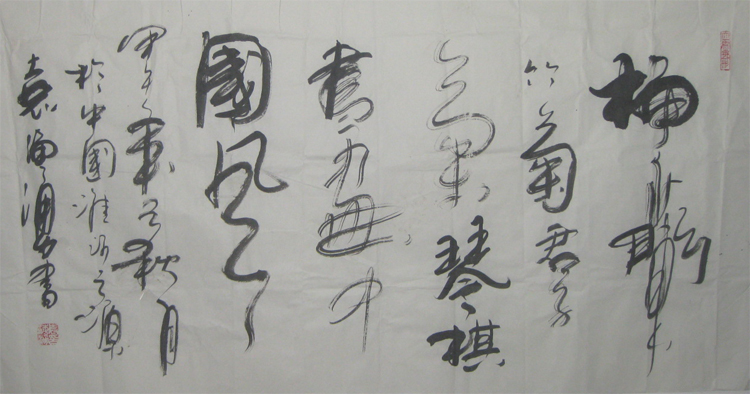 梅蘭
竹菊君子
氣琴棋
書畫中
國風
甲午年之秋月
於中國淮河之源
袁書